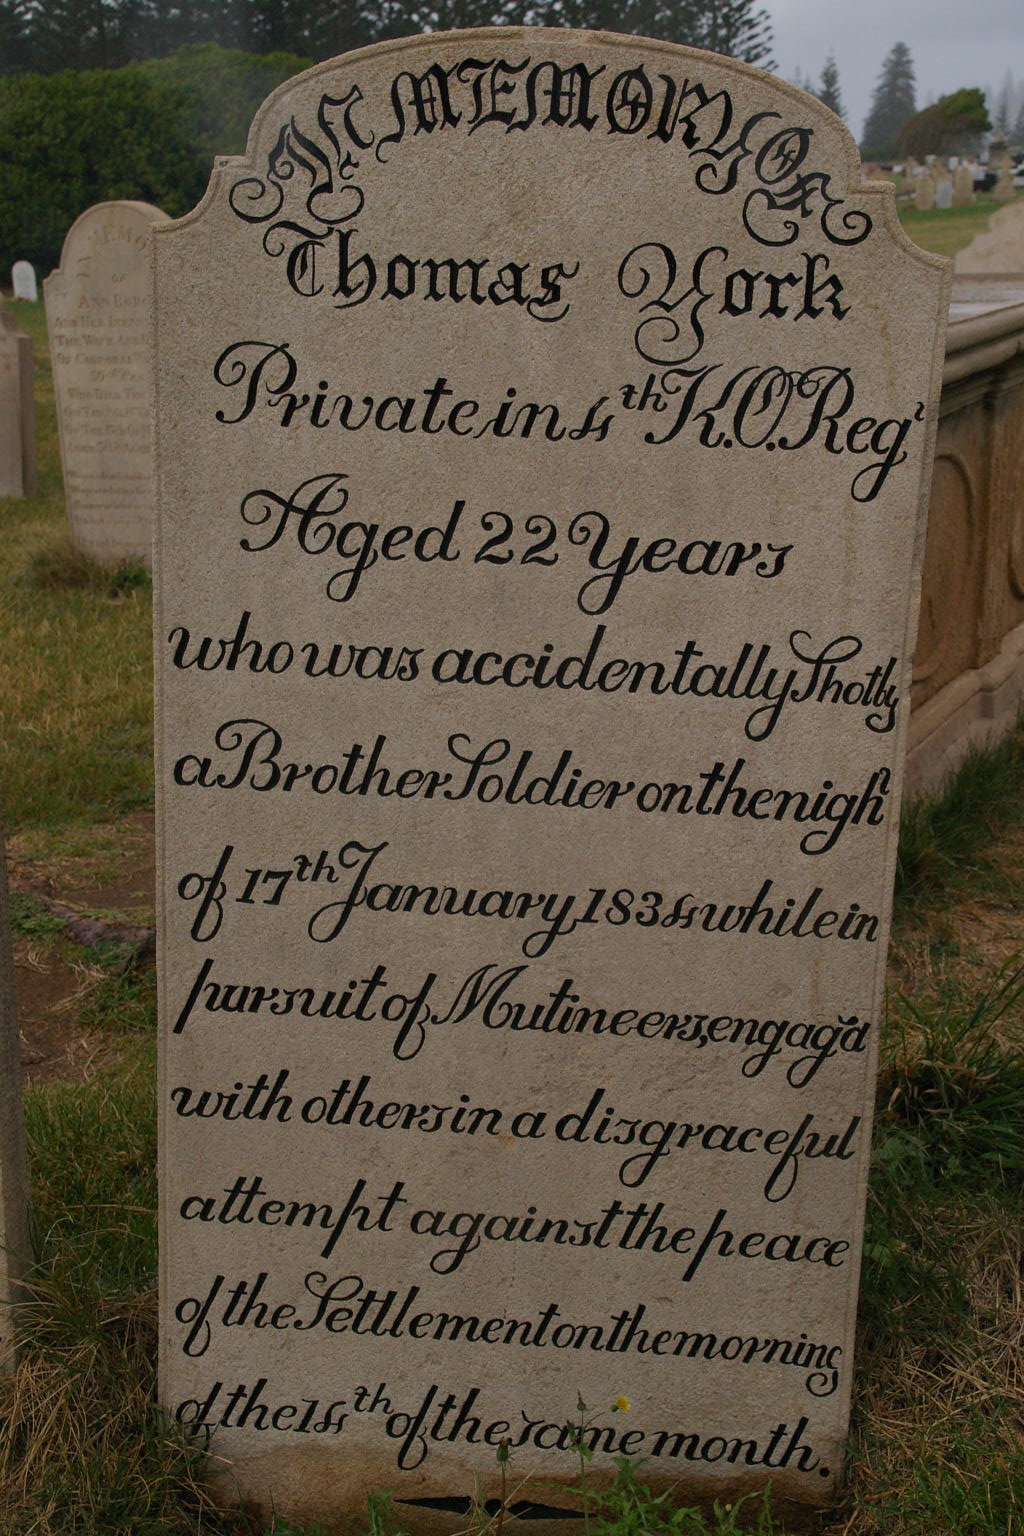 IN MEMORY OF
Thomas York
Private in 4th K.O. Regt
Aged 22 Years
who was accidentally Shot by
a Brother Soldier on the night
of 17th January 1834 while in
pursuit of Mutineers, engag'd
with others in a disgraceful
attempt against the peace
of the Settlement on the morning
of the 14th of the same month.
IN MEMORY
OF
ANN